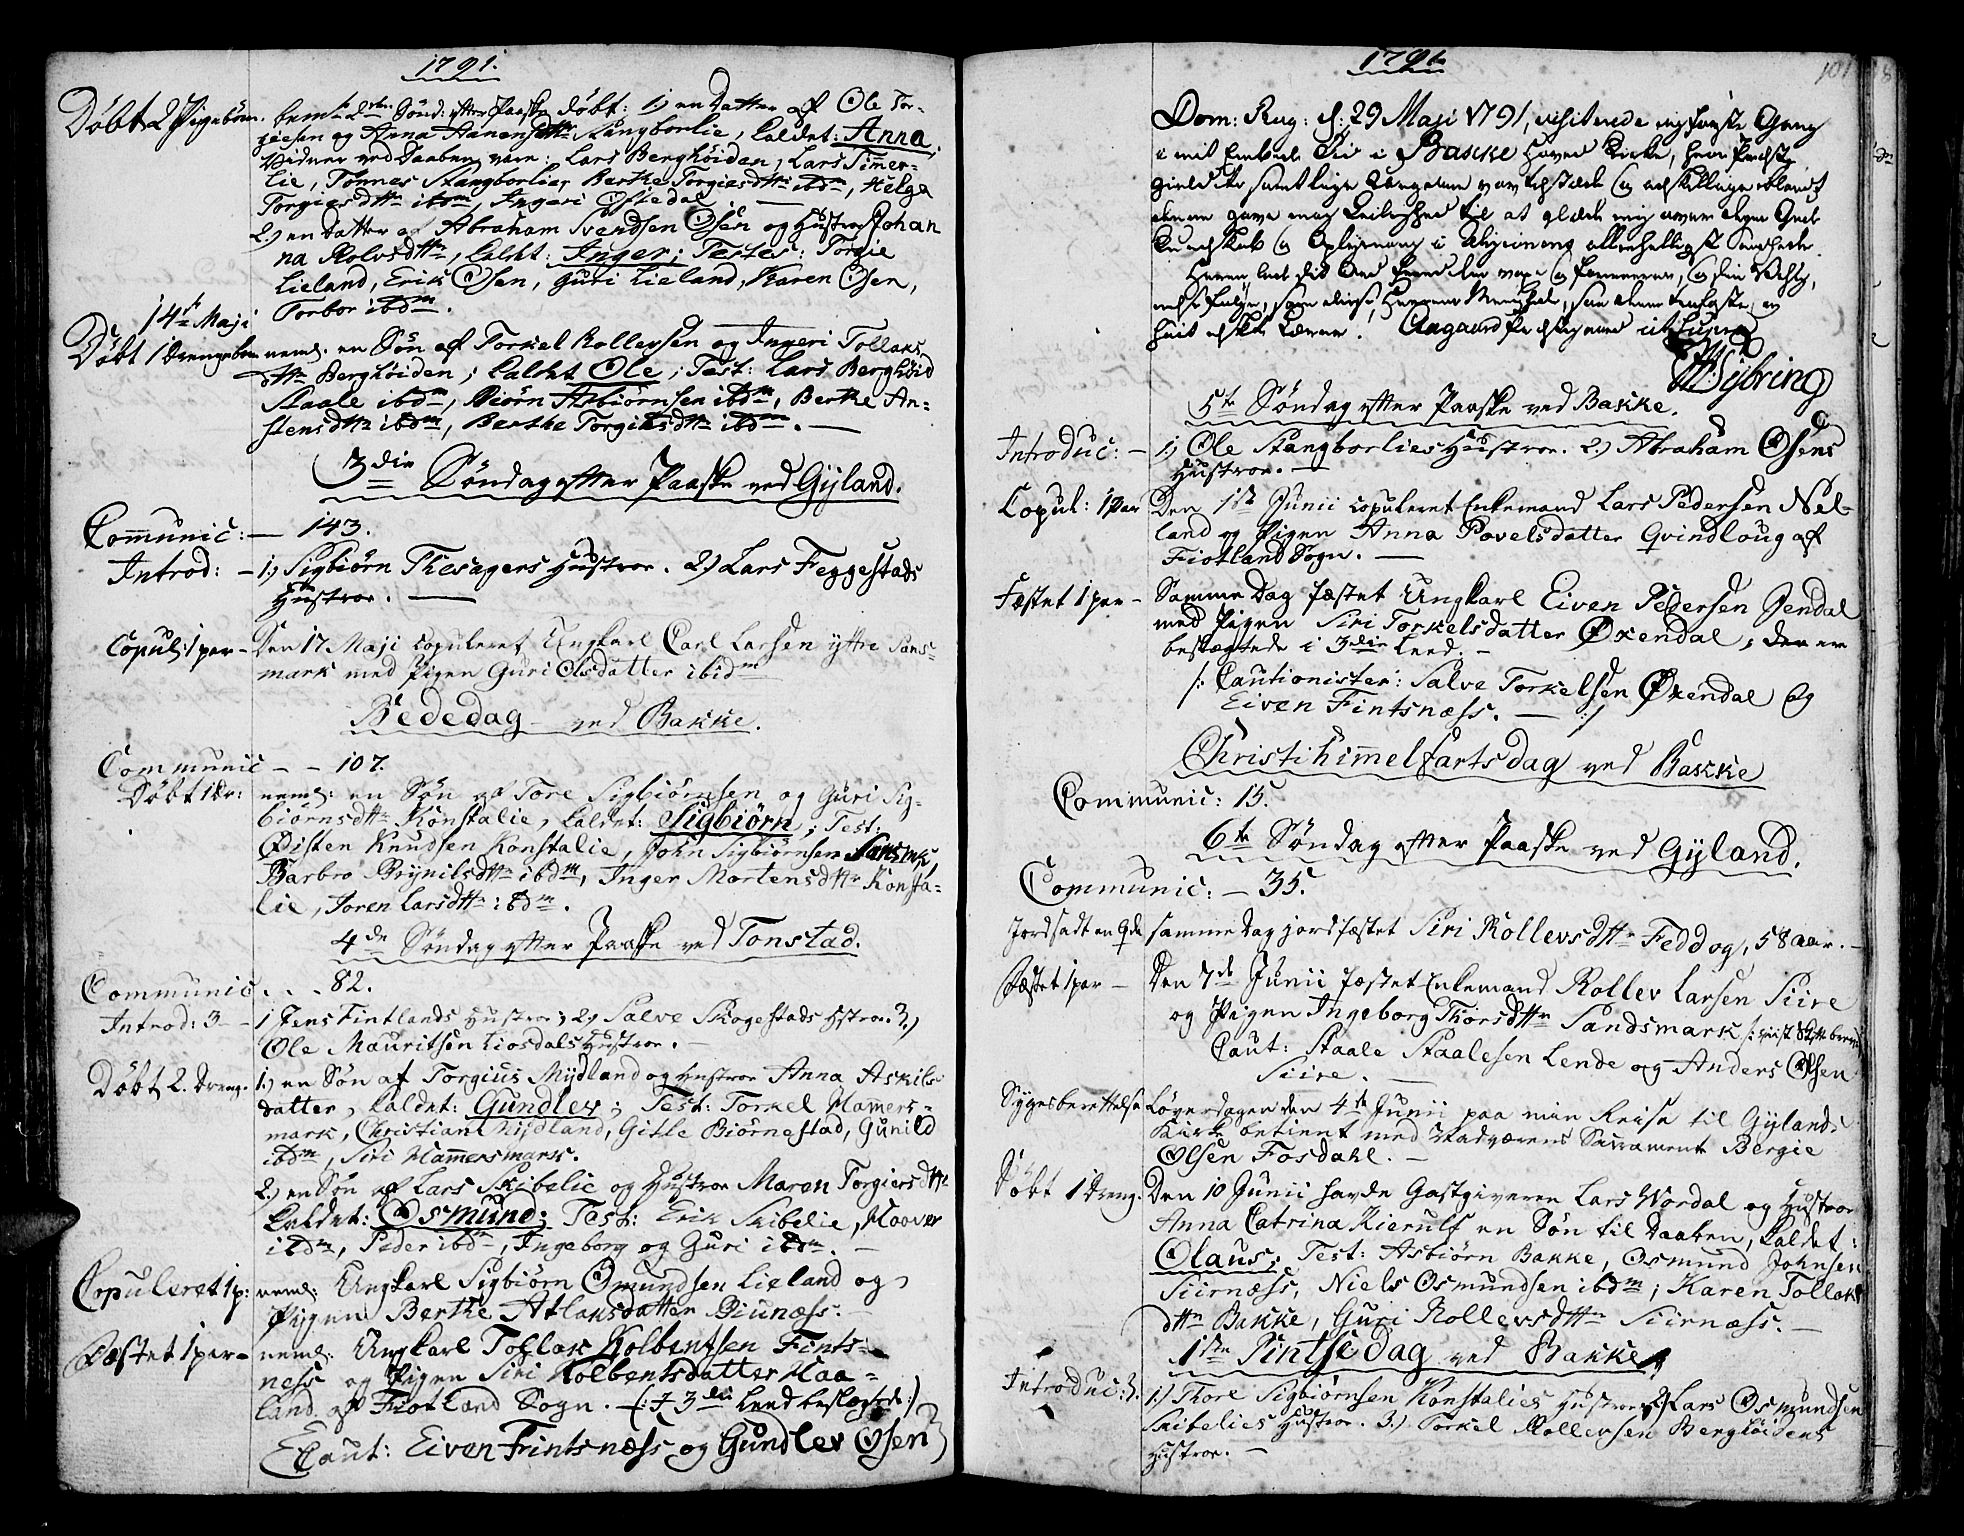 1791.
Døbt 2 Pigebørn. 2den Sønd: efter Paaske døbt: 1) en Datter af Ole Tor-
giesen og Anna Aanensdttr Stangborlie, kaldet: Anna;
Vidner ved Daaben vare: Lars Berghöiden, Lars Timer-
lie, Tønnes Stangborlie, Berthe Torgiesdttr ibdm, Helga
Torgiesdttr ibdm, Ingeri Ofstedal.
2) en Datter af Abraham Svendsen Osen og Hustroe Johan
na Rolvsdttr, kaldt: Inger; Testes: Torgie
Lieland, Erik Osen, Guri Lieland, Karen Osen,
Torbor ibdm.
14de Maji
Døbt 1 Drengebarn neml. en Søn af Torkel Rollevsen og Ingeri Tollaks
dttr Berghöiden; kaldet Ole; Test: Lars Berghöid
Staale ibdm, Biörn Asbiörnsen ibdm, Berthe An-
stensdttr ibdm, Berthe Torgiesdttr ibdm.
3die Søndag efter Paaske ved Gyland.
Communic: — 143.
Introd: — 1) Sigbiörn Thesagers Hustroe. 2) Lars Feggestads
Hustroe.
Copul: 1 par — Den 17 Maji copuleret Ungkarl Carl Larsen yttre Sans-
mark med Pigen Guri Olsdatter ibidm
Bededag ved Bakke.
Communic — 107.
Døbt 1 Dr: neml: en Søn af Tore Sigbiörnsen og Guri Sig-
biörnsdttr Konstalie, kaldet: Sigbiörn; Test:
Øisten Knudsen Konstalie, John Sigbiörnsen Sansmk,
Barbro Brynilsdttr ibdm, Inger Mortensdttr Konsta-
lie, Joren Larsdttr ibdm.
4de Søndag efter Paaske ved Tonstad.
Communic . . . 82.
Introd: 3 — 1) Jens Fintlands Hustroe; 2) Salve Skogestads Hstroe. 3)
Ole Mauritsen Liosdals Hustroe.
Døbt 2. Dreng. 1) en Søn af Torgius Mydland og Hustroe Anna Askils
datter, kaldet: Gundlev; Test: Torkel Hamers-
mark, Christian Mydland, Gitle Biörnestad, Gunild
ibdm, Siri Hamersmark.
2) en Søn af Lars Skibelie og Hustroe Maren Torgiersdttr
kaldet: Osmund; Test: Erik Skibelie, Haaver
ibdm, Peder ibdm, Ingeborg og Guri ibdm.
Copuleret 1 p: neml: Ungkarl Sigbiörn Omundsen Lieland og
Pigen Berthe Atlaksdatter Biunæss.
Fæstet 1 par — neml: Ungkarl Tollak Kolbentsen Fints-
ness og Pigen Siri Kolbentsdatter Haa-
land af Fiotland Sogn. (: i 3die Leed beslegtede :)
Caut: Eiven Frintsnæss og Gundlev Osen
1791.
101
Dom: Rog: d: 29 Maji 1791, visiterede jeg første Gang
i mit Embede Tid i Bakke Hoved Kirke, hvor Præste
gieldets samtlige Ungdom var tilstede og adskillige iblandt
denne gave mig Leilighed til at glæde mig over deres Gud
Kundskab og Oplysning i Religionens allerhelligste Sandheder.
Aagaard Præstegaard ut supra
Sybring
5te Søndag efter Paaske ved Bakke.
Introduc: — 1) Ole Stangborlies Hustroe. 2) Abraham Osens
Hustroe.
Copul: 1 par Den 1ste Junii copuleret Enkemand Lars Pedersen Nel-
land og Pigen Anna Povelsdatter Qvindloug af
Fiotland Sogn.
Fæstet 1 par — Samme Dag fæstet Ungkarl Eiven Pedersen Jendal
med Pigen Siri Torkelsdatter Øxendal, der er
beslægtede i 3die Leed.
/: Cautionister: Salve Torkelsen Øxendal og
Eiven Fintsnæss. :/
Christi himmelfartsdag ved Bakke
Communic: 15.
6te Søndag efter Paaske ved Gyland.
Communic: — 35.
Jordsadt en Qde samme Dag jordfæstet Siri Rollevsdttr Feddog, 58 aar.
Fæstet 1 par — Den 7de Junii fæstet Enkemand Rollev Larsen Siire
og Pigen Ingeborg Thorsdttr Sandsmark
Caut: Staale Staalesen Lende og Anders Olsen
Siire.
Sygesberettelse Løverdagen den 4de Junii paa min Reise til Gylands
Kirke betient med Nadverens Sacramente Bergie
Olsen Fosdahl.
Døbt 1 Dreng. Den 10 Junii havde Gastgiveren Lars Wordal og Hustroe
Anna Catrina Kierulf en Søn til Daaben, kaldet:
Olaus; Test: Asbiörn Bakke, Osmund Johnsen
Siirnæss, Niels Osmundsen ibdm; Karen Tollaks
dttr Bakke, Guri Rollevsdttr Siirnæss.
1ste Pintsedag ved Bakke
Introduc: 3. 1) Thore Sigbiörnsen Konstalies Hustroe 2) Lars Osmundsen
Skibelies Hustroe. 3.) Torkel Rollevsen Berghöidens
Hustroe.